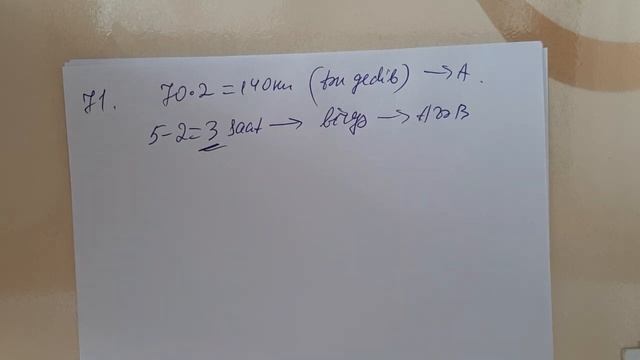 71. 70·2=140km (tək gedib) → A.
5-2=3 saat → birgə → A və B